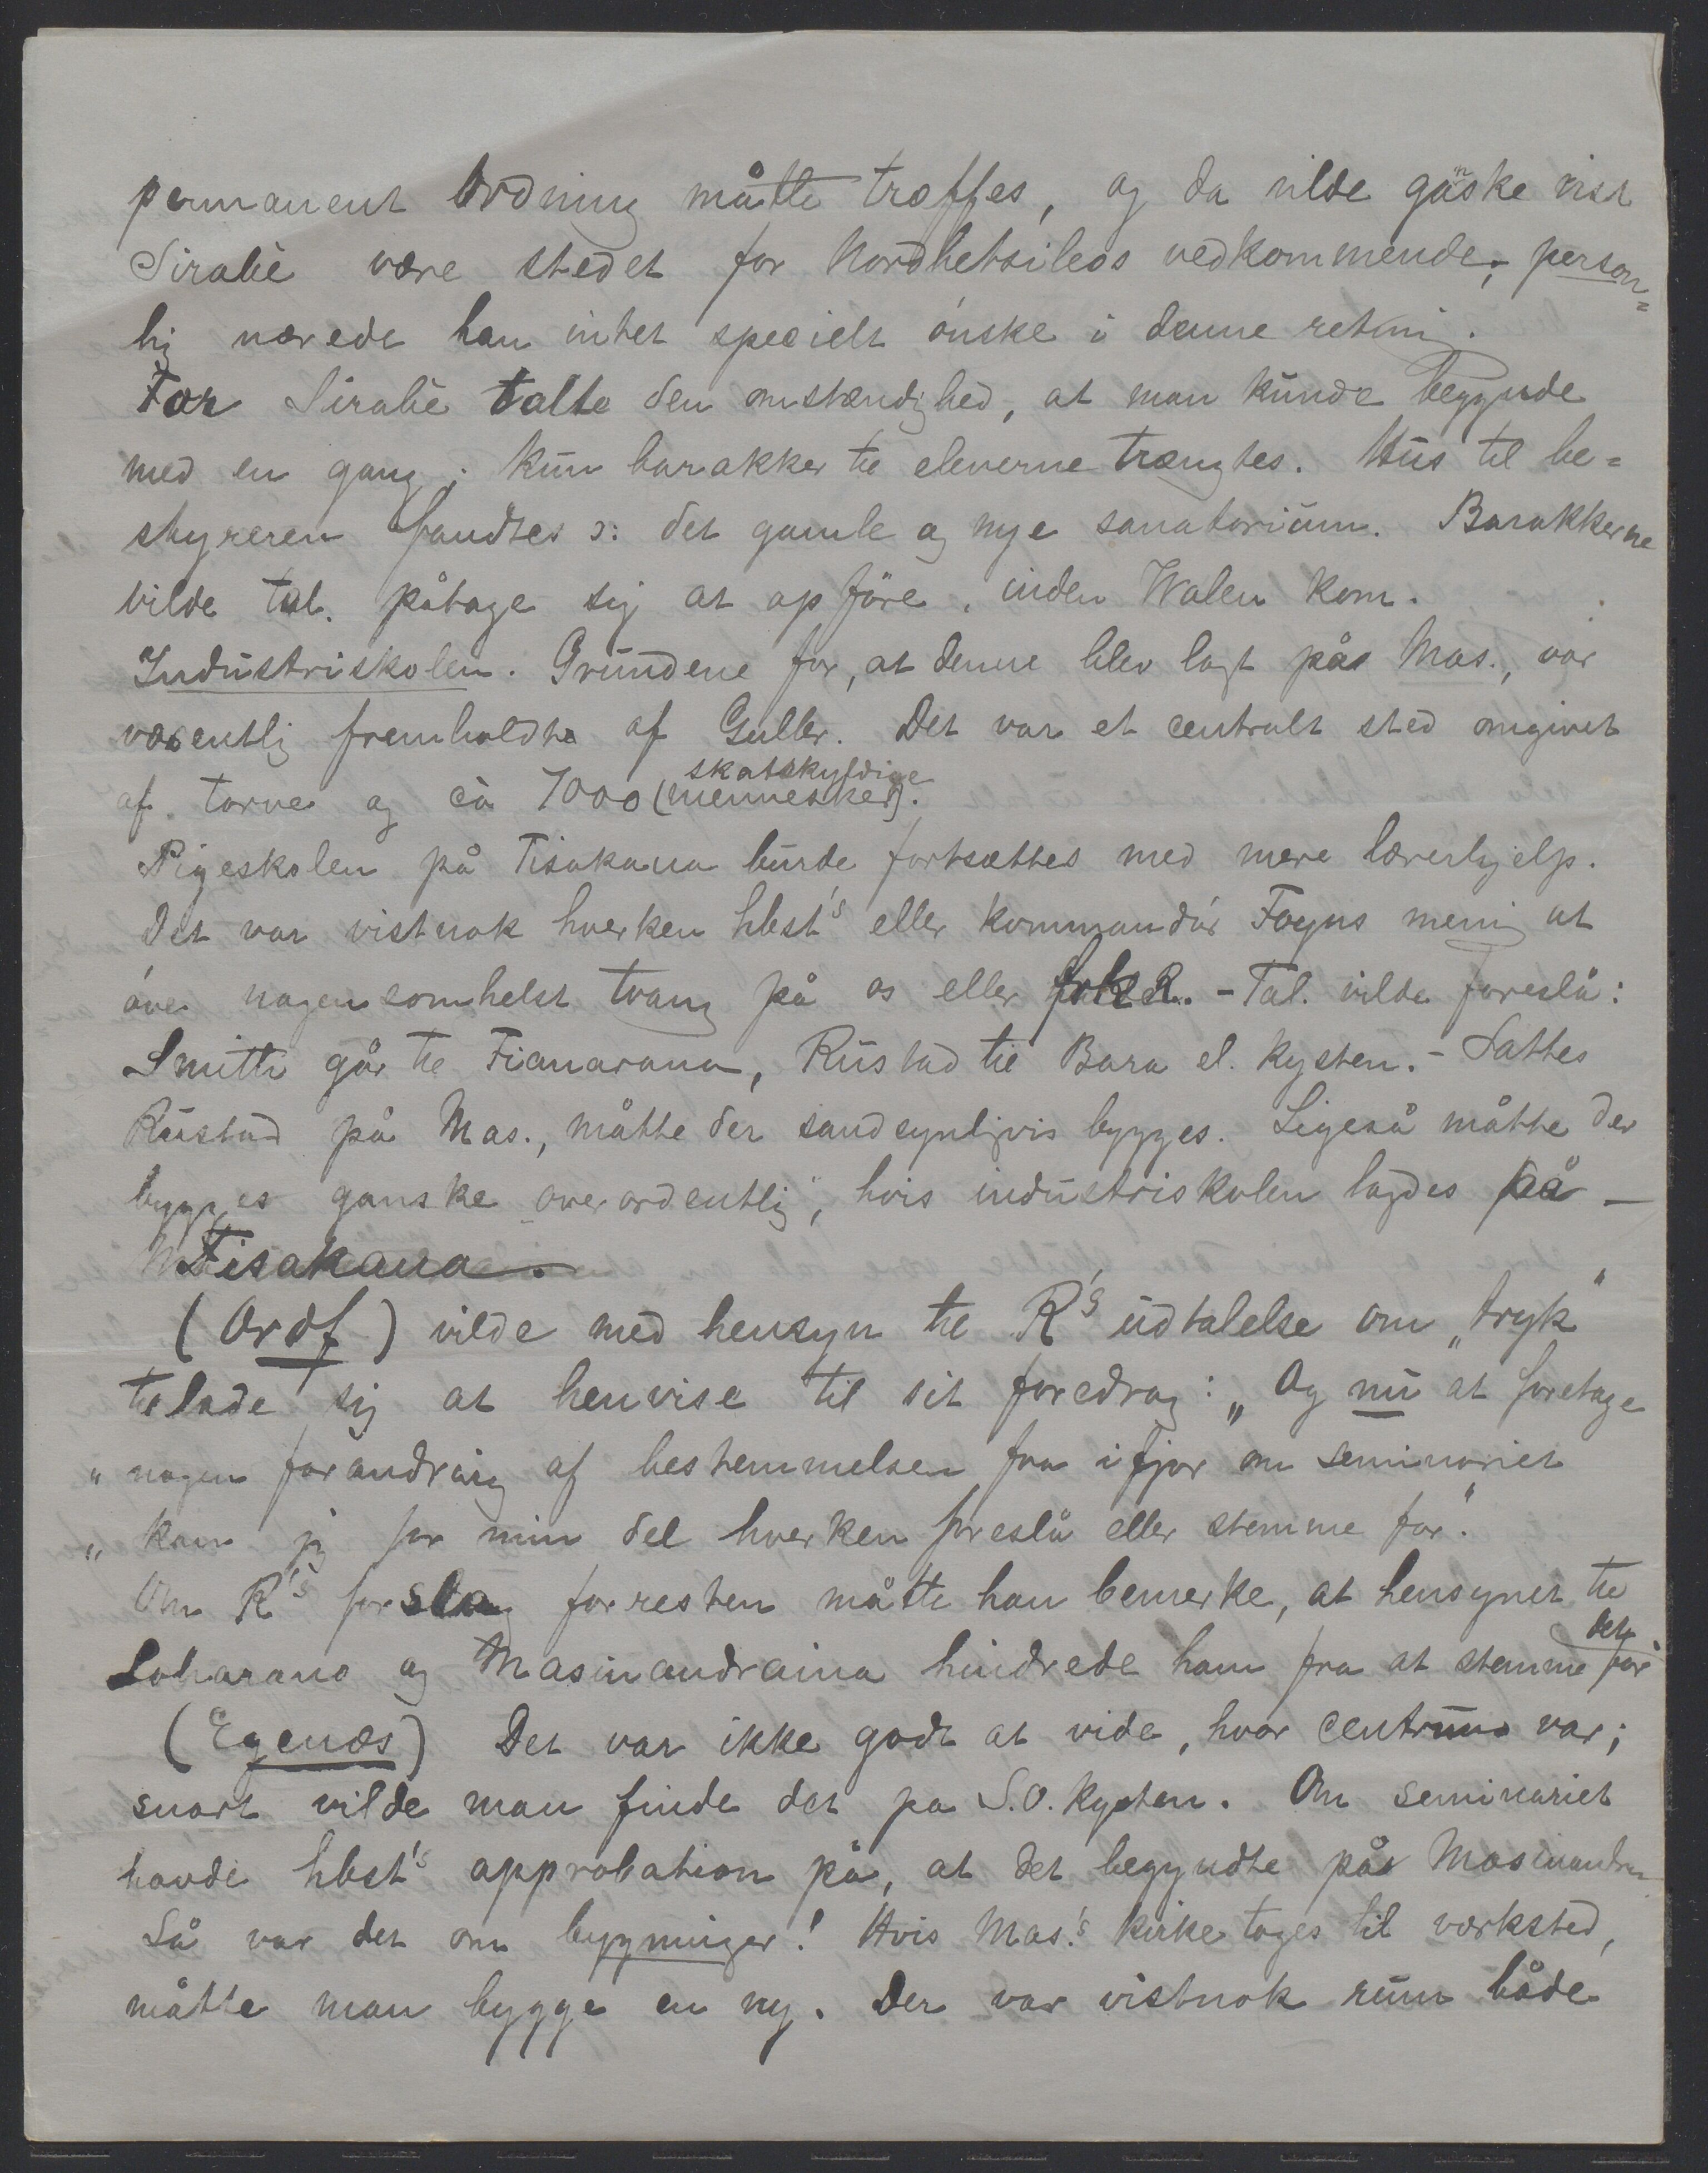 permanent ordning måtte træffes, og da vilde ganske vist
Sirabè være stedet for Nordbetsileos vedkommende; person=
lig nærede han intet specielt ónske i denne retning.
For Sirabè talte den omstændighed, at man kunde begynde
med en gang; kun barakker til eleverne trængtes. Hus til be=
styreren fandtes ɔ: det gamle og nye sanatorium. Barakkerne
vilde tal. påtage sig at opföre, inden Walen kom.
Industriskolen. Grundene for, at denne blev lagt på Mas., var
væsentlig fremholdte af Guller. Det var et centralt sted omgivet
af torve og ca 7000 (skatskyldige mennesker).
Pigeskolen på Fisakana burde fortsættes med mere lærerhjelp.
Det var vistnok hverken hbest's eller kommandór Foyns mening at
óve nogensomhelst tvang på os eller R. - Tal. vilde foreslå:
Smith går til Fianarana, Rustad til Bara el. kysten. - Sattes
Rustad på Mas., måtte der sandsynligvis bygges. Ligeså måtte der
bygges ganske overordentlig, hvis industriskolen lagdes på -
Fisakana.
(Ordf) vilde med hensyn til R's udtalelse om „tryk"
tillade sig at henvise til sit foredrag: „Og nu at foretage
„nogen forandring af bestemmelsen fra ifjor om seminariet
„kan jeg for min del hverken foreslå eller stemme for".
Om R's forslag forresten måtte han bemerke, at hensynet til
Loharano og Masinandraina hindrede ham fra at stemme for det
(Egenæs) Det var ikke godt at vide, hvor centrum var;
snart vilde man finde det på S.O. kysten. Om seminariet
havde hbest's approbation på, at det begyndte på Masinandr.
Så var det om bygninger! Hvis Mas.'s kirke toges til værksted,
måtte man bygge en ny. Der var vistnok rum både